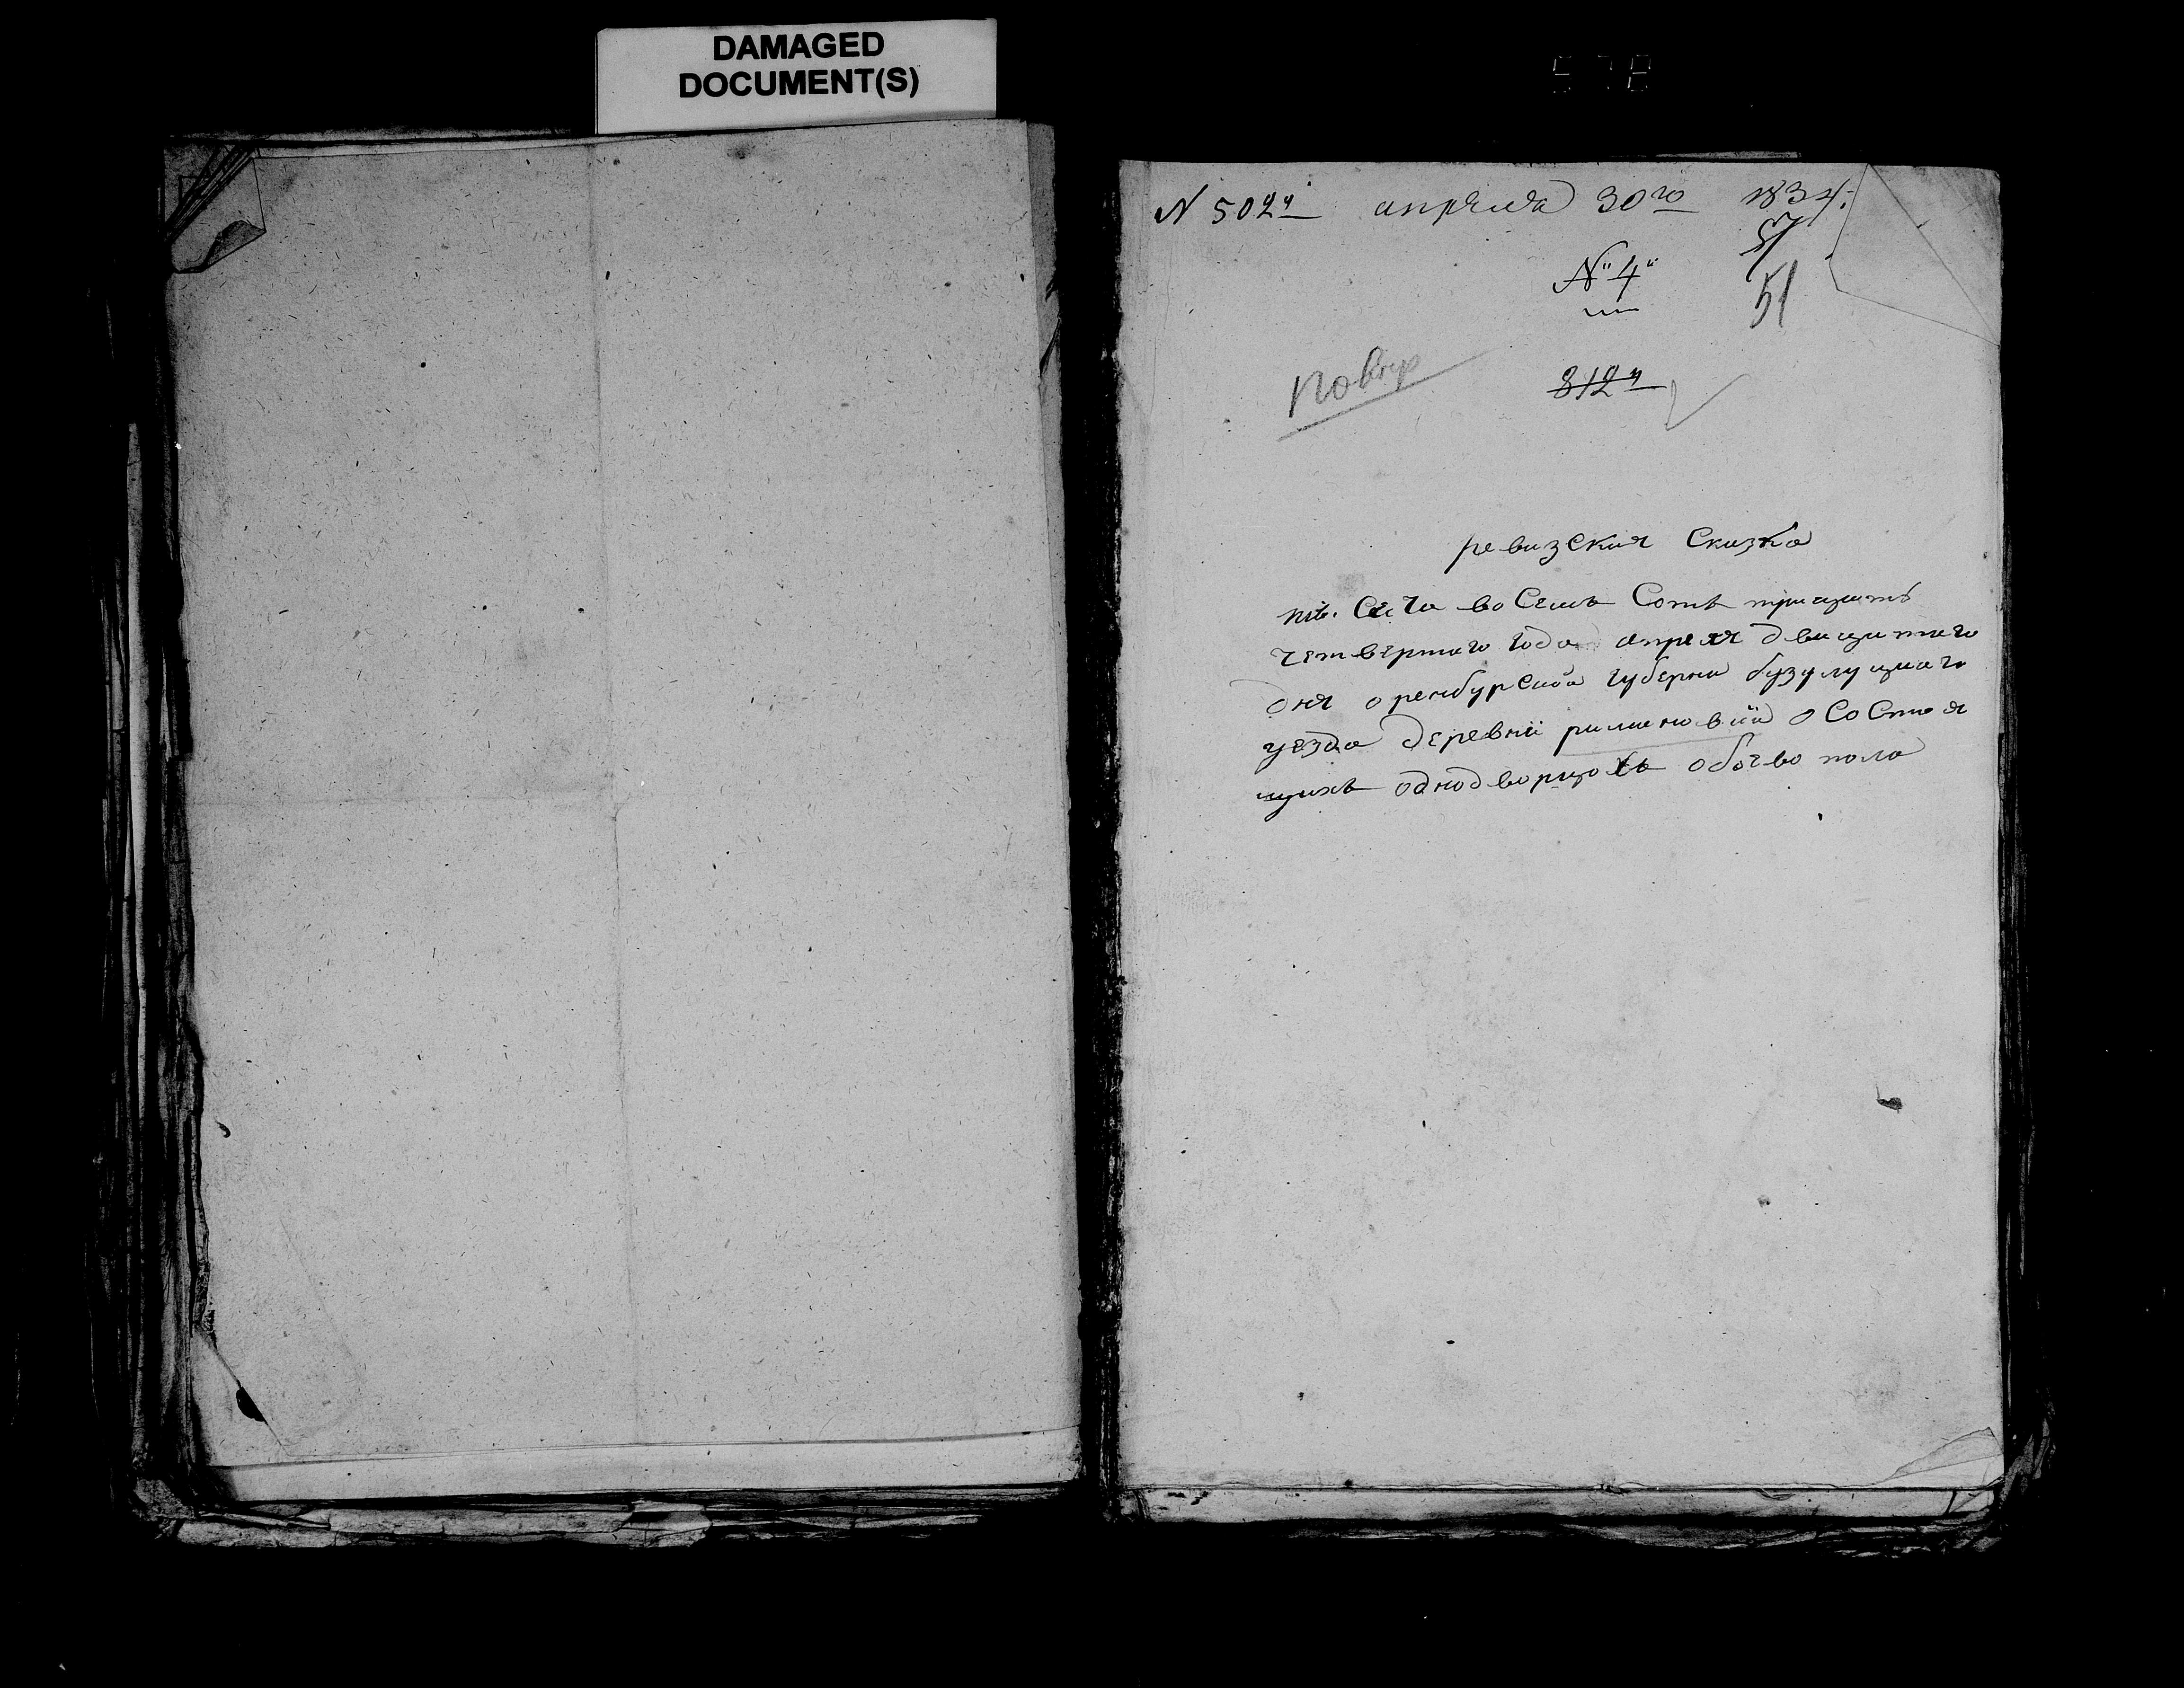 DAMAGED
DOCUMENT(S)
N 502й апреля 30го 1834:
51
N"4"
51
повер
812й
ревизския Сказка
Сеча во Семь Сотъ трицать
четвертаго года апреля двацатаго
дня оренбурской губерни бузулуцкаго
уезда деревни риминовкй о Состоя
щихъ однодворцовъ обоево пола